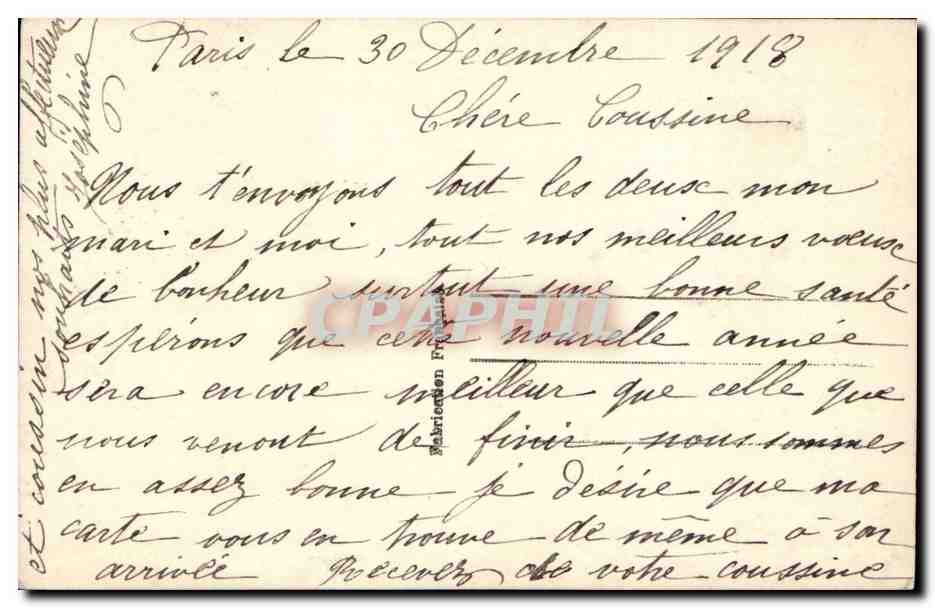 Paris le 30 Décembre 1918
Chére Coussine
Nous t'envoyons tout les deux mon
mari et moi, tout nos meilleurs voeux
de bonheur surtout une bonne santé
espérons que cette nouvelle année
sera encore meilleur que celle que
nous venont de finir, nous sommes
en assez bonne je désire que ma
carte vous en trouve de même à son
arrivée Recevez de votre coussine
et coussin nos plus affectueux
souhaits Joséphine
Fabrication Française
CPAPHIL